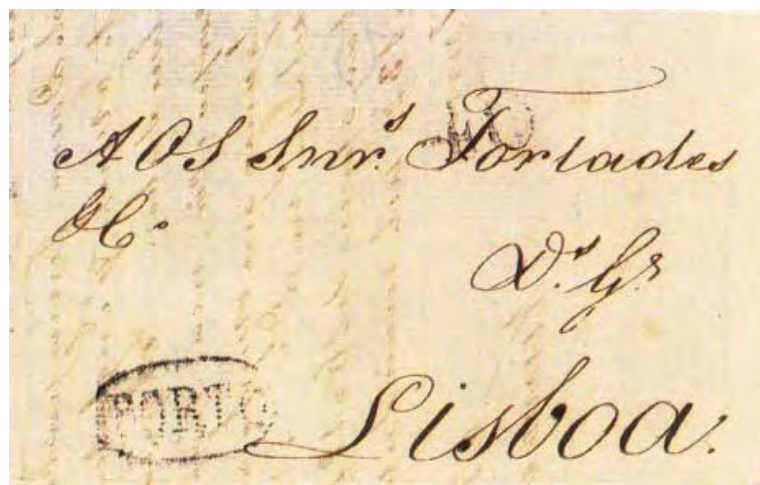 AOS Snr.s Torlades
& C.o
D.s G.e
PORTO
Lisboa.